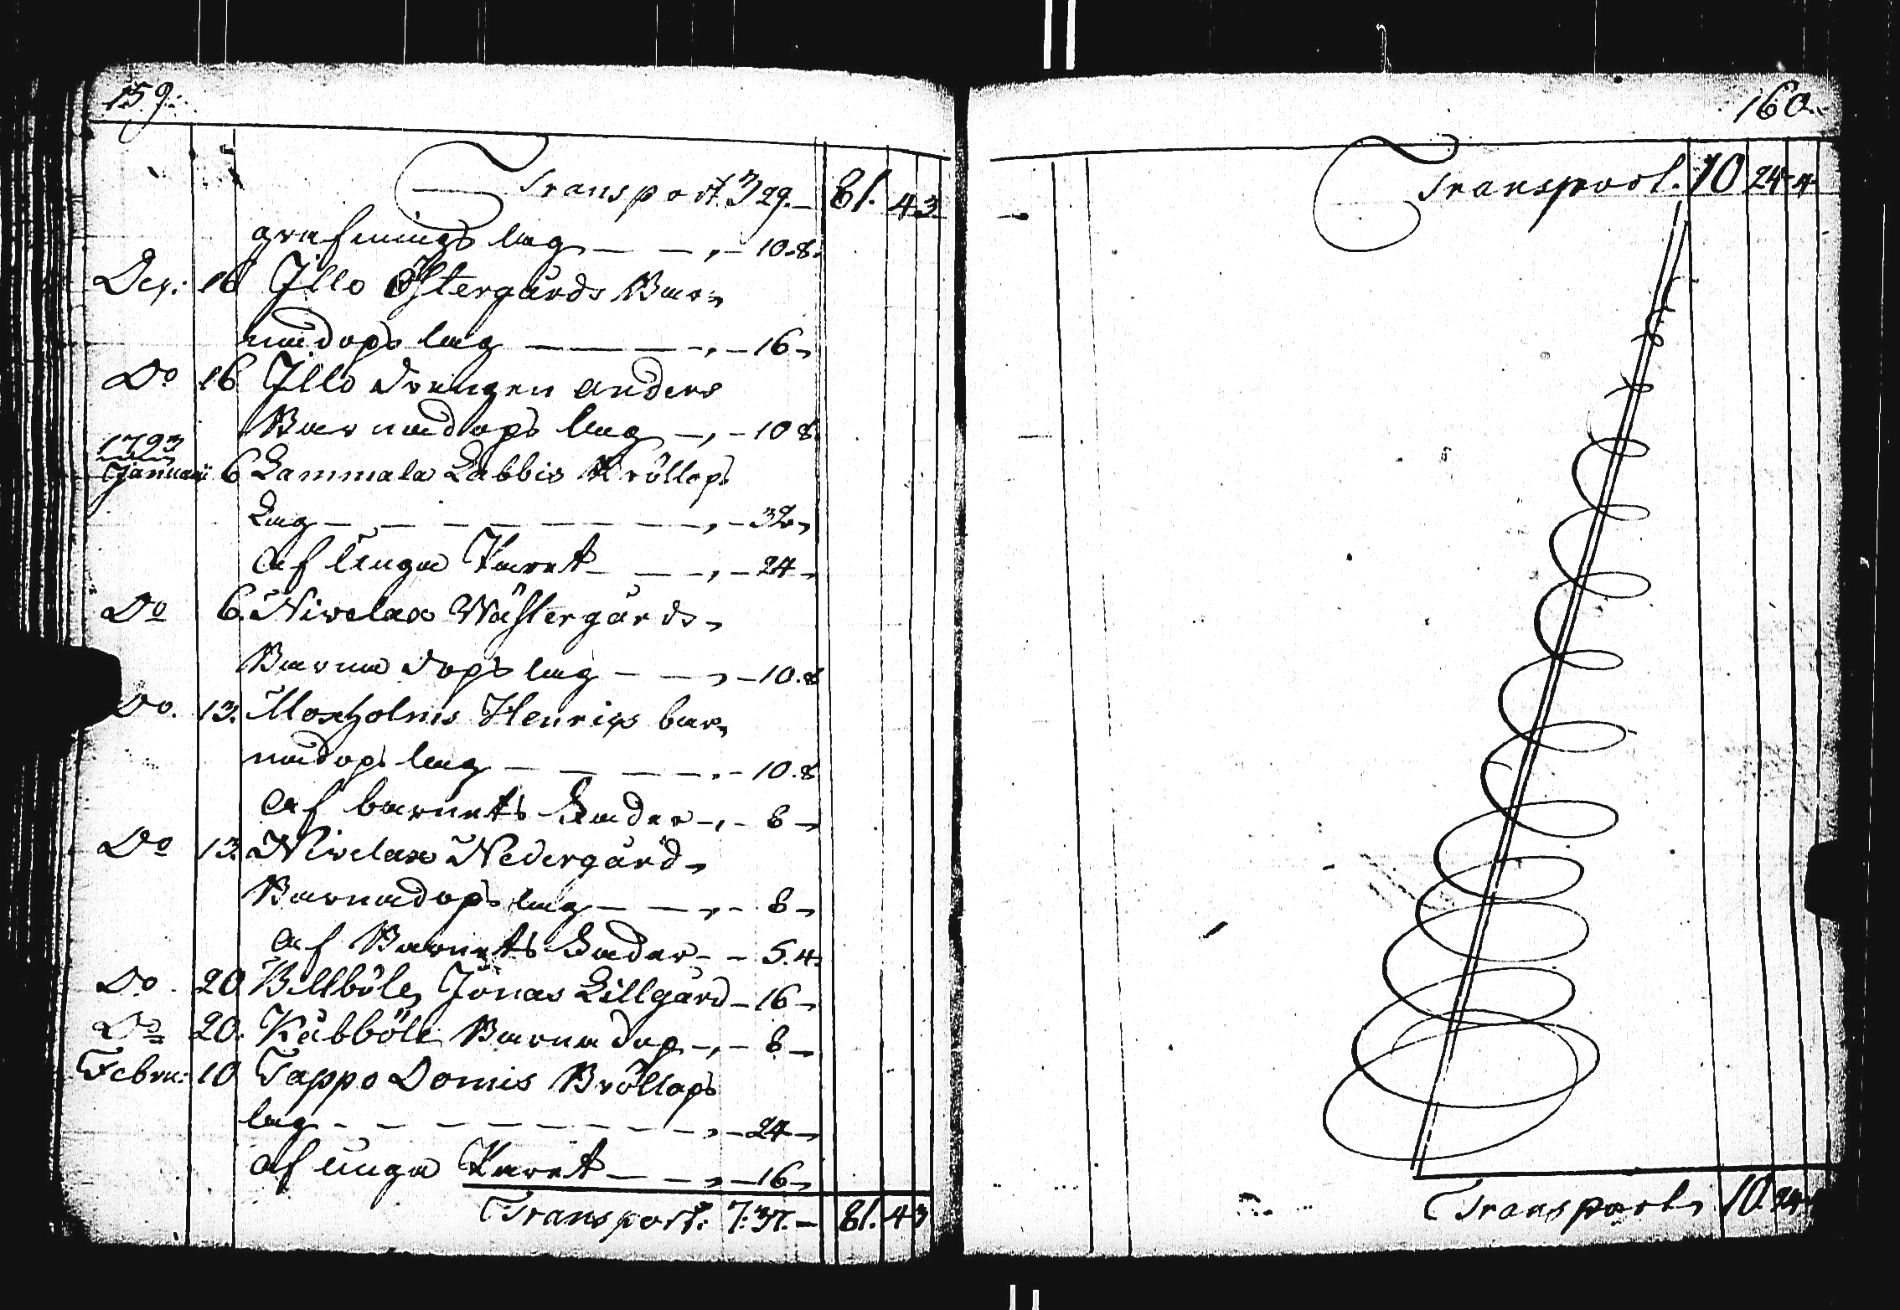 159.
Transport 3 29. – 81. 43
grafnings lag – – „ – 10.8.
Dec: 16 Illo Östergårds Bar-
nadops lag – – – – „ – 16 –
Do 16 Illo Drengen Anders
Barnadops lag – „ – 10 8.
1793
Januari 6 Gammala Labbis Bröllops
Lag – – – – – – – „ – 32 –
af Unga Paret – – „ – 24 –
Do 6. Nivelax Wästergårds –
Barna dops lag – – „ – 10.8
Do. 13. Monholms Henrics bar-
nadops lag – – – – „ – 10.8
af barnets Fader – „ – 8 –
Do 13. Nivelax Nedergård –
Barnadops lag – – „ – 8 –
af Barnets Fader – – 5.4.
Do. 20 Billböle Jonas Lillgård – 16 –
Do 20. Käbböle Barna dop – „ – 8 –
Febru: 10 Tappo Domis Bröllops
lag – – – – – – – „ – 24 –
af unga Paret – – „ – 16 –
Transport: 7: 37. – 81. 43
160.
Transport. 10 24 4
Transport, 10. 24 4